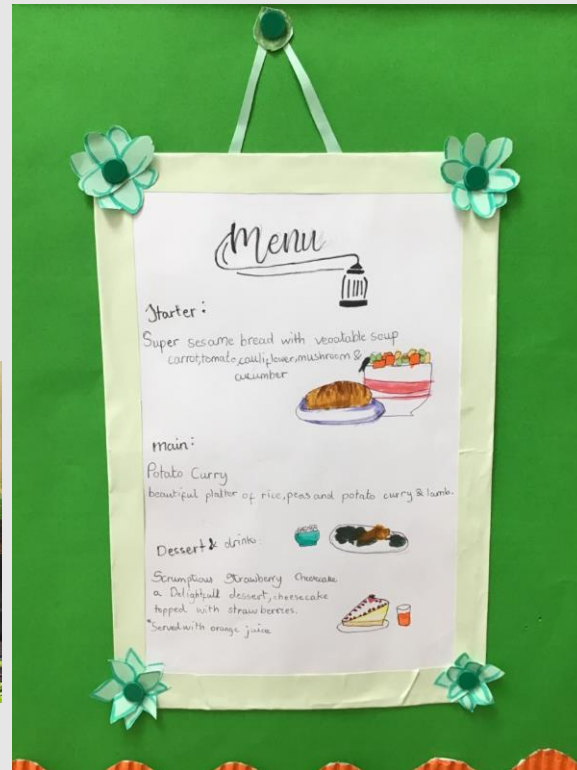 Menu
Starter:
Super sesame bread with vegatable soup
carrot,tomato,cauliflower,mushroom &
cucumber
main:
Potato Curry
beautiful platter of rice, peas and potato curry & lamb.
Dessert & drink:
Scrumptious Strawberry Cheesecake
a Delightfull dessert, cheesecake
topped with strawberries.
*Served with orange juice